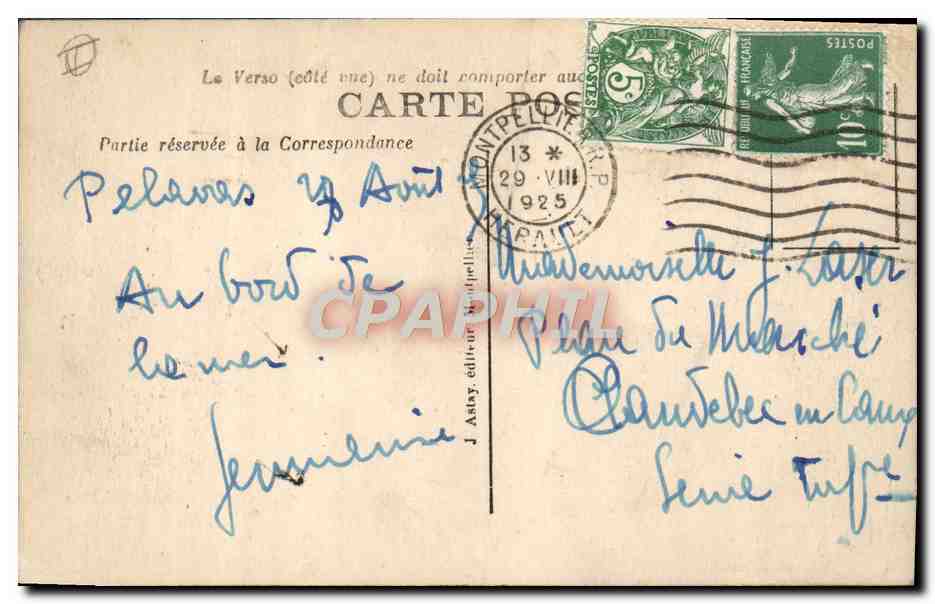 Le Verso (côté vue) ne doit comporter auc
CARTE POS
Partie réservée à la Correspondance
Pelavas Août
Au bord de
la mer.
J Astay, éditeur Montpellier
MONTPELLIER R.P.
13 *
29 · VIII
1925
HERAULT
5c
POSTES
REPUBLIQUE FRANÇAISE
POSTES
10c
Mademoiselle J.
Place du Marché
Caudebec en Caux
Seine Infre
CPAPHIL